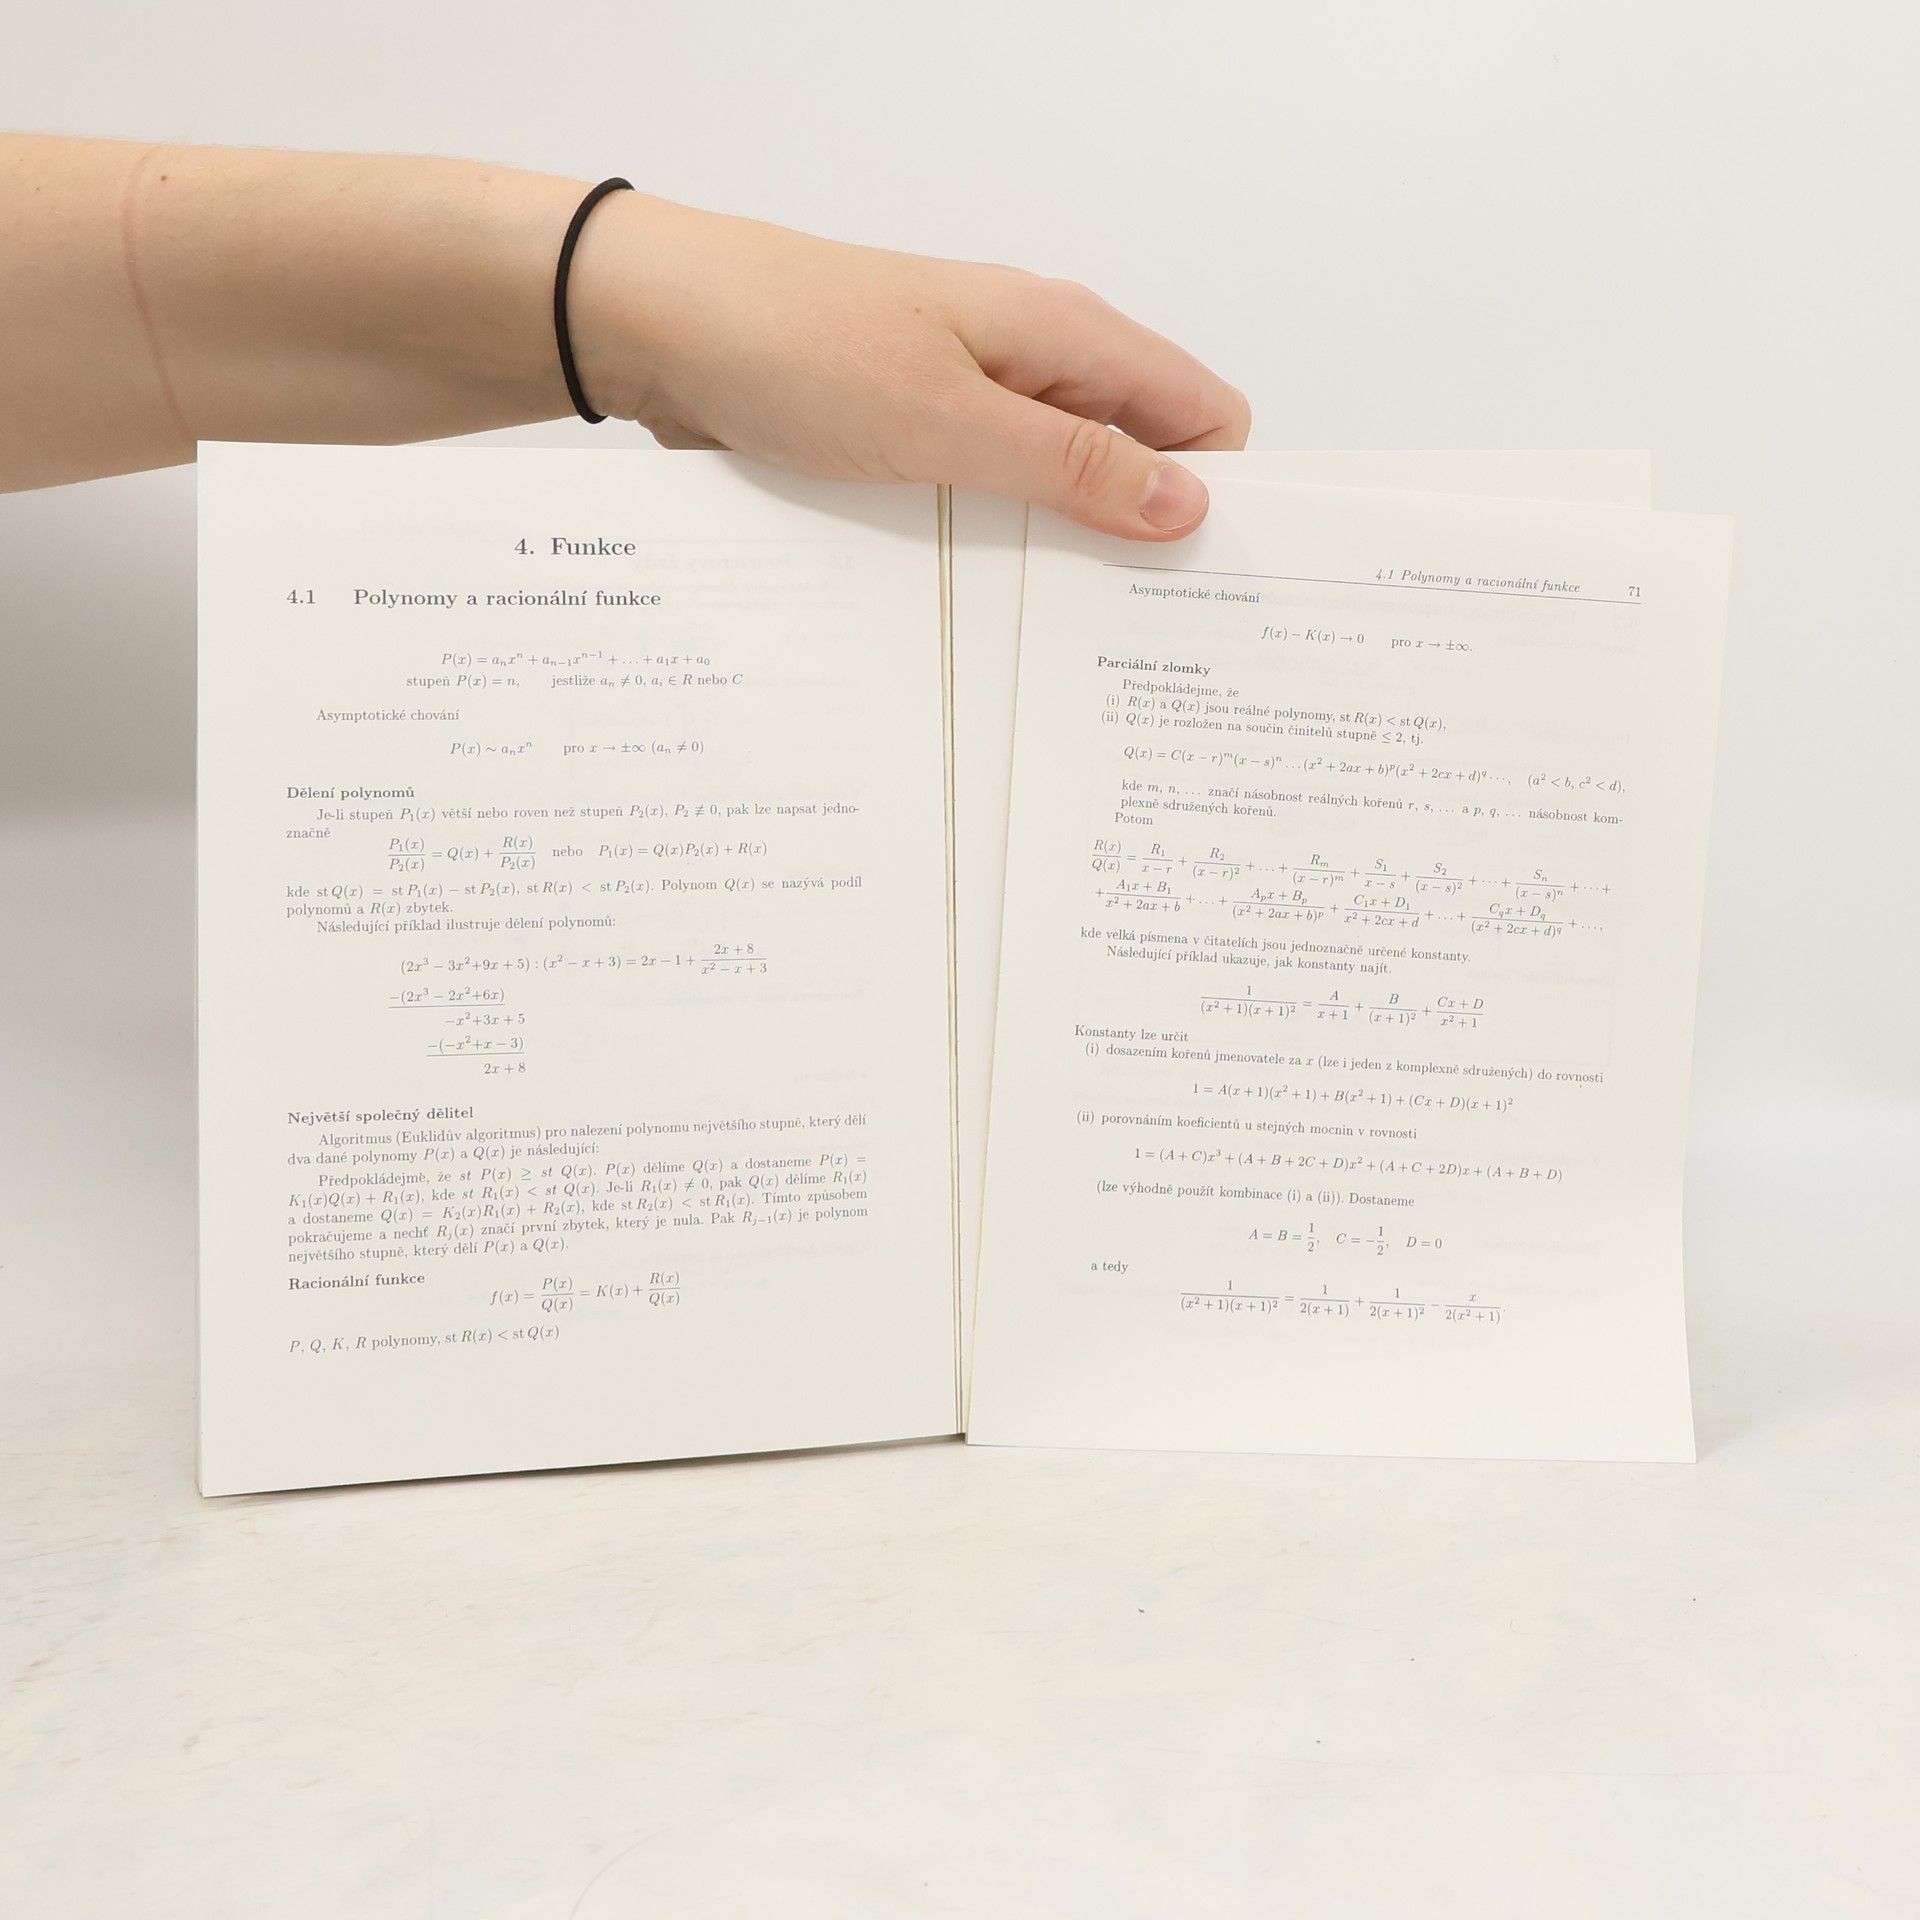 4. Funkce
4.1 Polynomy a racionální funkce
P(x) = aₙxⁿ + aₙ₋₁xⁿ⁻¹ + … + a₁x + a₀
stupeň P(x) = n, jestliže aₙ ≠ 0, aᵢ ∈ R nebo C
Asymptotické chování
P(x) ~ aₙxⁿ pro x → ±∞ (aₙ ≠ 0)
Dělení polynomů
Je-li stupeň P₁(x) větší nebo roven než stupeň P₂(x), P₂ ≢ 0, pak lze napsat jedno-
značně
P₁(x)/P₂(x) = Q(x) + R(x)/P₂(x) nebo P₁(x) = Q(x)P₂(x) + R(x)
kde st Q(x) = st P₁(x) − st P₂(x), st R(x) < st P₂(x). Polynom Q(x) se nazývá podíl
polynomů a R(x) zbytek.
Následující příklad ilustruje dělení polynomů:
(2x³ − 3x²+9x + 5) : (x² − x + 3) = 2x − 1 + (2x + 8)/(x² − x + 3)
−(2x³ − 2x²+6x)
−x²+3x + 5
−(−x²+x − 3)
2x + 8
Největší společný dělitel
Algoritmus (Euklidův algoritmus) pro nalezení polynomu největšího stupně, který dělí
dva dané polynomy P(x) a Q(x) je následující:
Předpokládejmě, že st P(x) ≥ st Q(x). P(x) dělíme Q(x) a dostaneme P(x) =
K₁(x)Q(x) + R₁(x), kde st R₁(x) < st Q(x). Je-li R₁(x) ≠ 0, pak Q(x) dělíme R₁(x)
a dostaneme Q(x) = K₂(x)R₁(x) + R₂(x), kde st R₂(x) < st R₁(x). Tímto způsobem
pokračujeme a nechť Rⱼ(x) značí první zbytek, který je nula. Pak Rⱼ₋₁(x) je polynom
největšího stupně, který dělí P(x) a Q(x).
Racionální funkce
f(x) = P(x)/Q(x) = K(x) + R(x)/Q(x)
P, Q, K, R polynomy, st R(x) < st Q(x)
4.1 Polynomy a racionální funkce 71
Asymptotické chování
f(x) − K(x) → 0 pro x → ±∞.
Parciální zlomky
Předpokládejme, že
(i) R(x) a Q(x) jsou reálné polynomy, st R(x) < st Q(x),
(ii) Q(x) je rozložen na součin činitelů stupně ≤ 2, tj.
Q(x) = C(x − r)ᵐ(x − s)ⁿ …(x² + 2ax + b)ᵖ(x² + 2cx + d)^q ⋯, (a² < b, c² < d),
kde m, n, … značí násobnost reálných kořenů r, s, … a p, q, … násobnost kom-
plexně sdružených kořenů.
Potom
R(x)/Q(x) = R₁/(x − r) + R₂/(x − r)² + … + Rₘ/(x − r)ᵐ + S₁/(x − s) + S₂/(x − s)² + ⋯ + Sₙ/(x − s)ⁿ + ⋯ +
+ (A₁x + B₁)/(x² + 2ax + b) + … + (Aₚx + Bₚ)/(x² + 2ax + b)ᵖ + (C₁x + D₁)/(x² + 2cx + d) + … + (C_q x + D_q)/(x² + 2cx + d)^q + …,
kde velká písmena v čitatelích jsou jednoznačně určené konstanty.
Následující příklad ukazuje, jak konstanty najít.
1/((x² + 1)(x + 1)²) = A/(x + 1) + B/(x + 1)² + (Cx + D)/(x² + 1)
Konstanty lze určit
(i) dosazením kořenů jmenovatele za x (lze i jeden z komplexně sdružených) do rovnosti
1 = A(x + 1)(x² + 1) + B(x² + 1) + (Cx + D)(x + 1)²
(ii) porovnáním koeficientů u stejných mocnin v rovnosti
1 = (A + C)x³ + (A + B + 2C + D)x² + (A + C + 2D)x + (A + B + D)
(lze výhodně použít kombinace (i) a (ii)). Dostaneme
A = B = 1/2, C = −1/2, D = 0
a tedy
1/((x² + 1)(x + 1)²) = 1/(2(x + 1)) + 1/(2(x + 1)²) − x/(2(x² + 1)).